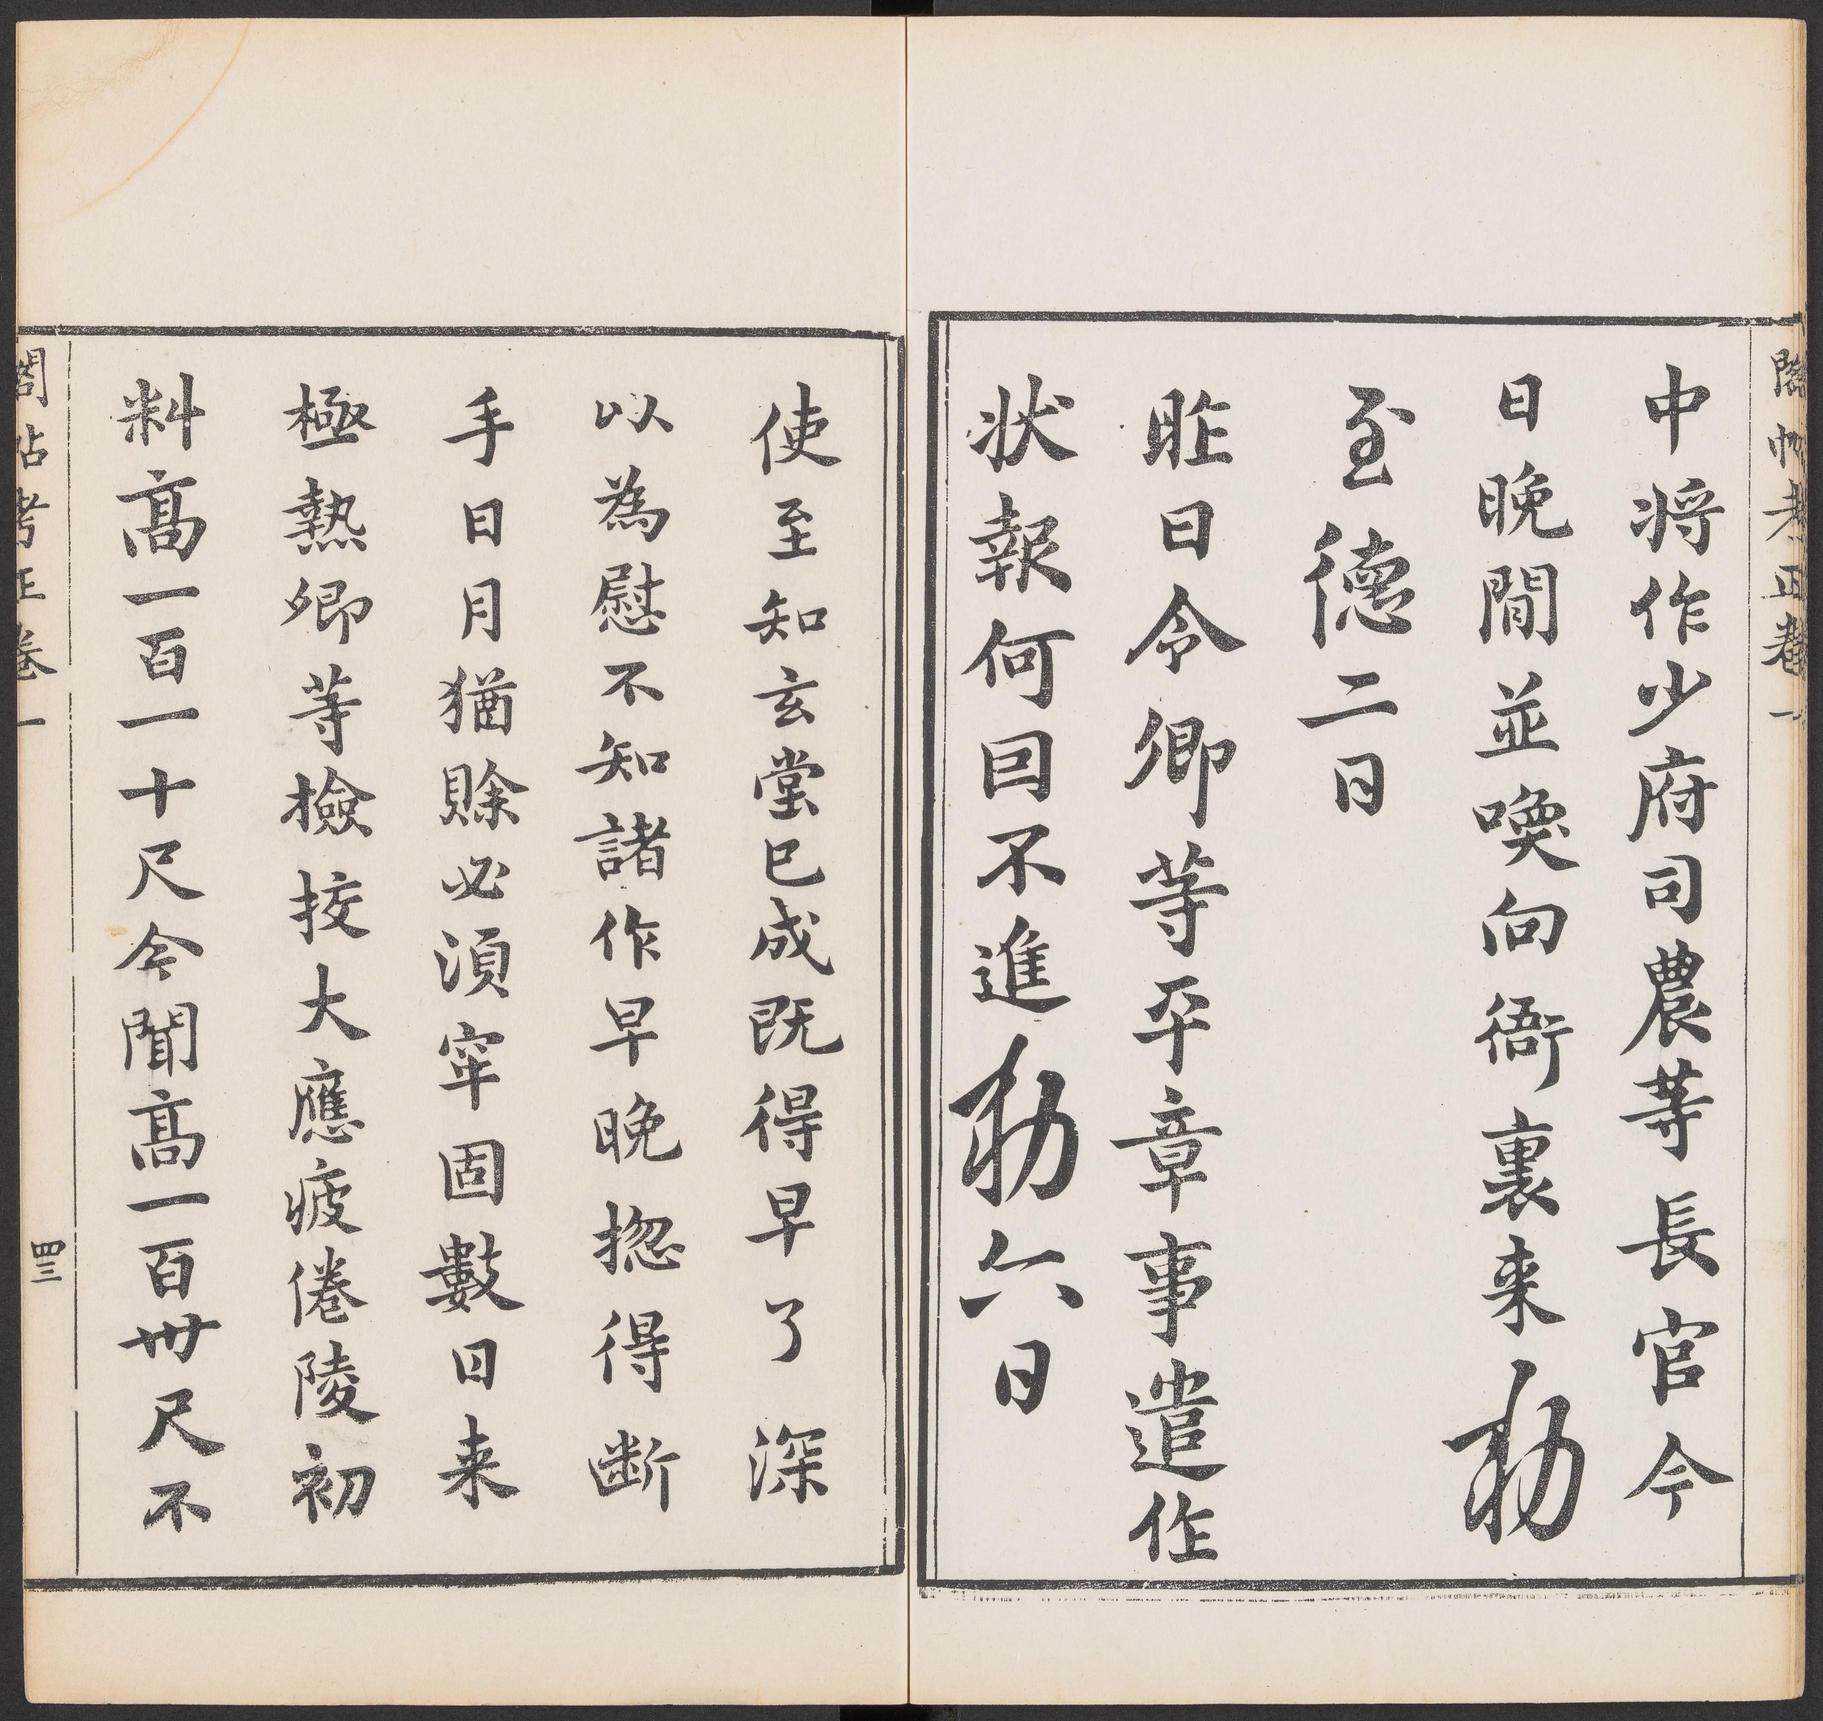 閣帖考正卷一
中將作少府司農等長官今
日晚間並喚向衙裏来勅
至德二日
昨日令卿等平章事遣作
状報何囙不進勅六日
使至知玄堂已成既得早了深
以為慰不知諸作早晚揔得断
手日月猶賖必湏窂固數日来
極熱卿等撿挍大應疲倦陵初
料髙一百一十尺今聞髙一百卅尺不
閣帖考正卷一
四三